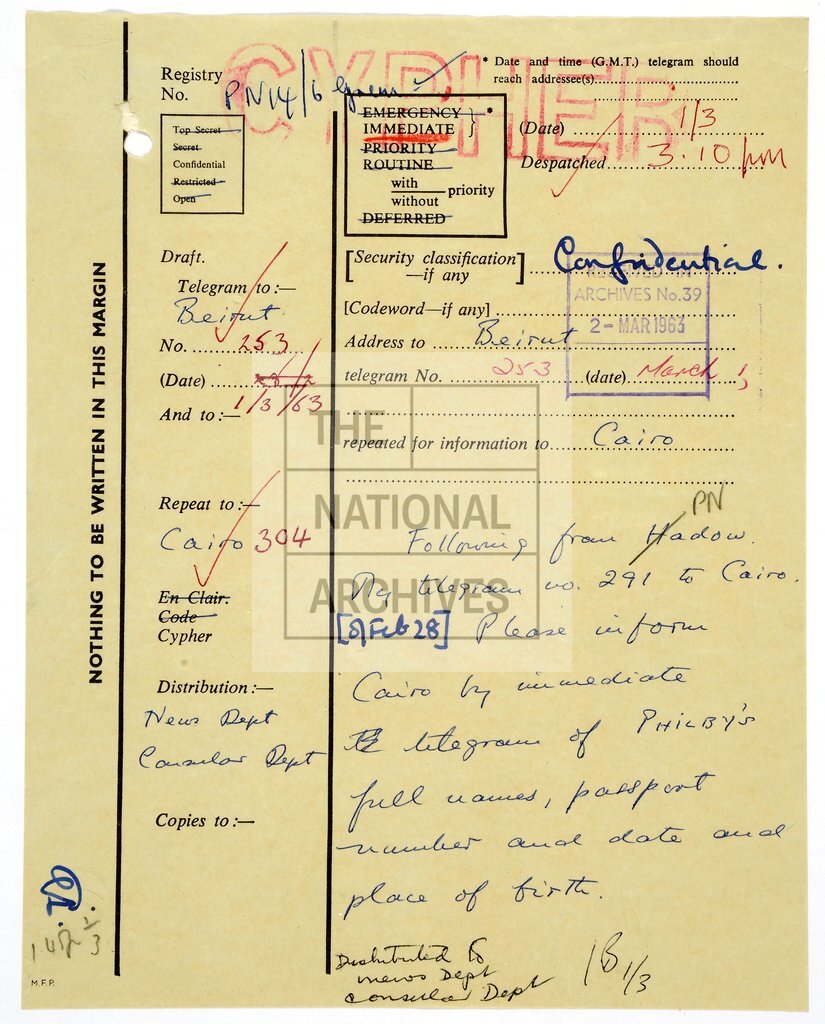 CYPHER
Registry
No. PN14/6
Top Secret
Secret
Confidential
Restricted
Open
EMERGENCY } *
IMMEDIATE
PRIORITY
ROUTINE
with
______ priority
without
DEFERRED
* Date and time (G.M.T.) telegram should
reach addressee(s)
(Date) 1/3
Despatched 3.10 pm
NOTHING TO BE WRITTEN IN THIS MARGIN
Draft.
Telegram to :—
Beirut
No. 253
(Date)
1/3/63
And to :—
Repeat to :—
Cairo 304
En Clair.
Code
Cypher
Distribution :—
News Dept
Consular Dept
Copies to :—
[Security classification]
—if any
Confidential.
ARCHIVES No.39
2- MAR 1963
[Codeword—if any]
Address to Beirut
telegram No. 253 (date) March 1,
repeated for information to Cairo
PN
Following from Hadow.
My telegram no. 291 to Cairo.
[of Feb 28] Please inform
Cairo by immediate
telegram of PHILBY'S
full names, passport
number and date and
place of birth.
Distributed to
News Dept
Consular Dept
1/3
1/3
M.F.P.
THE
NATIONAL
ARCHIVES